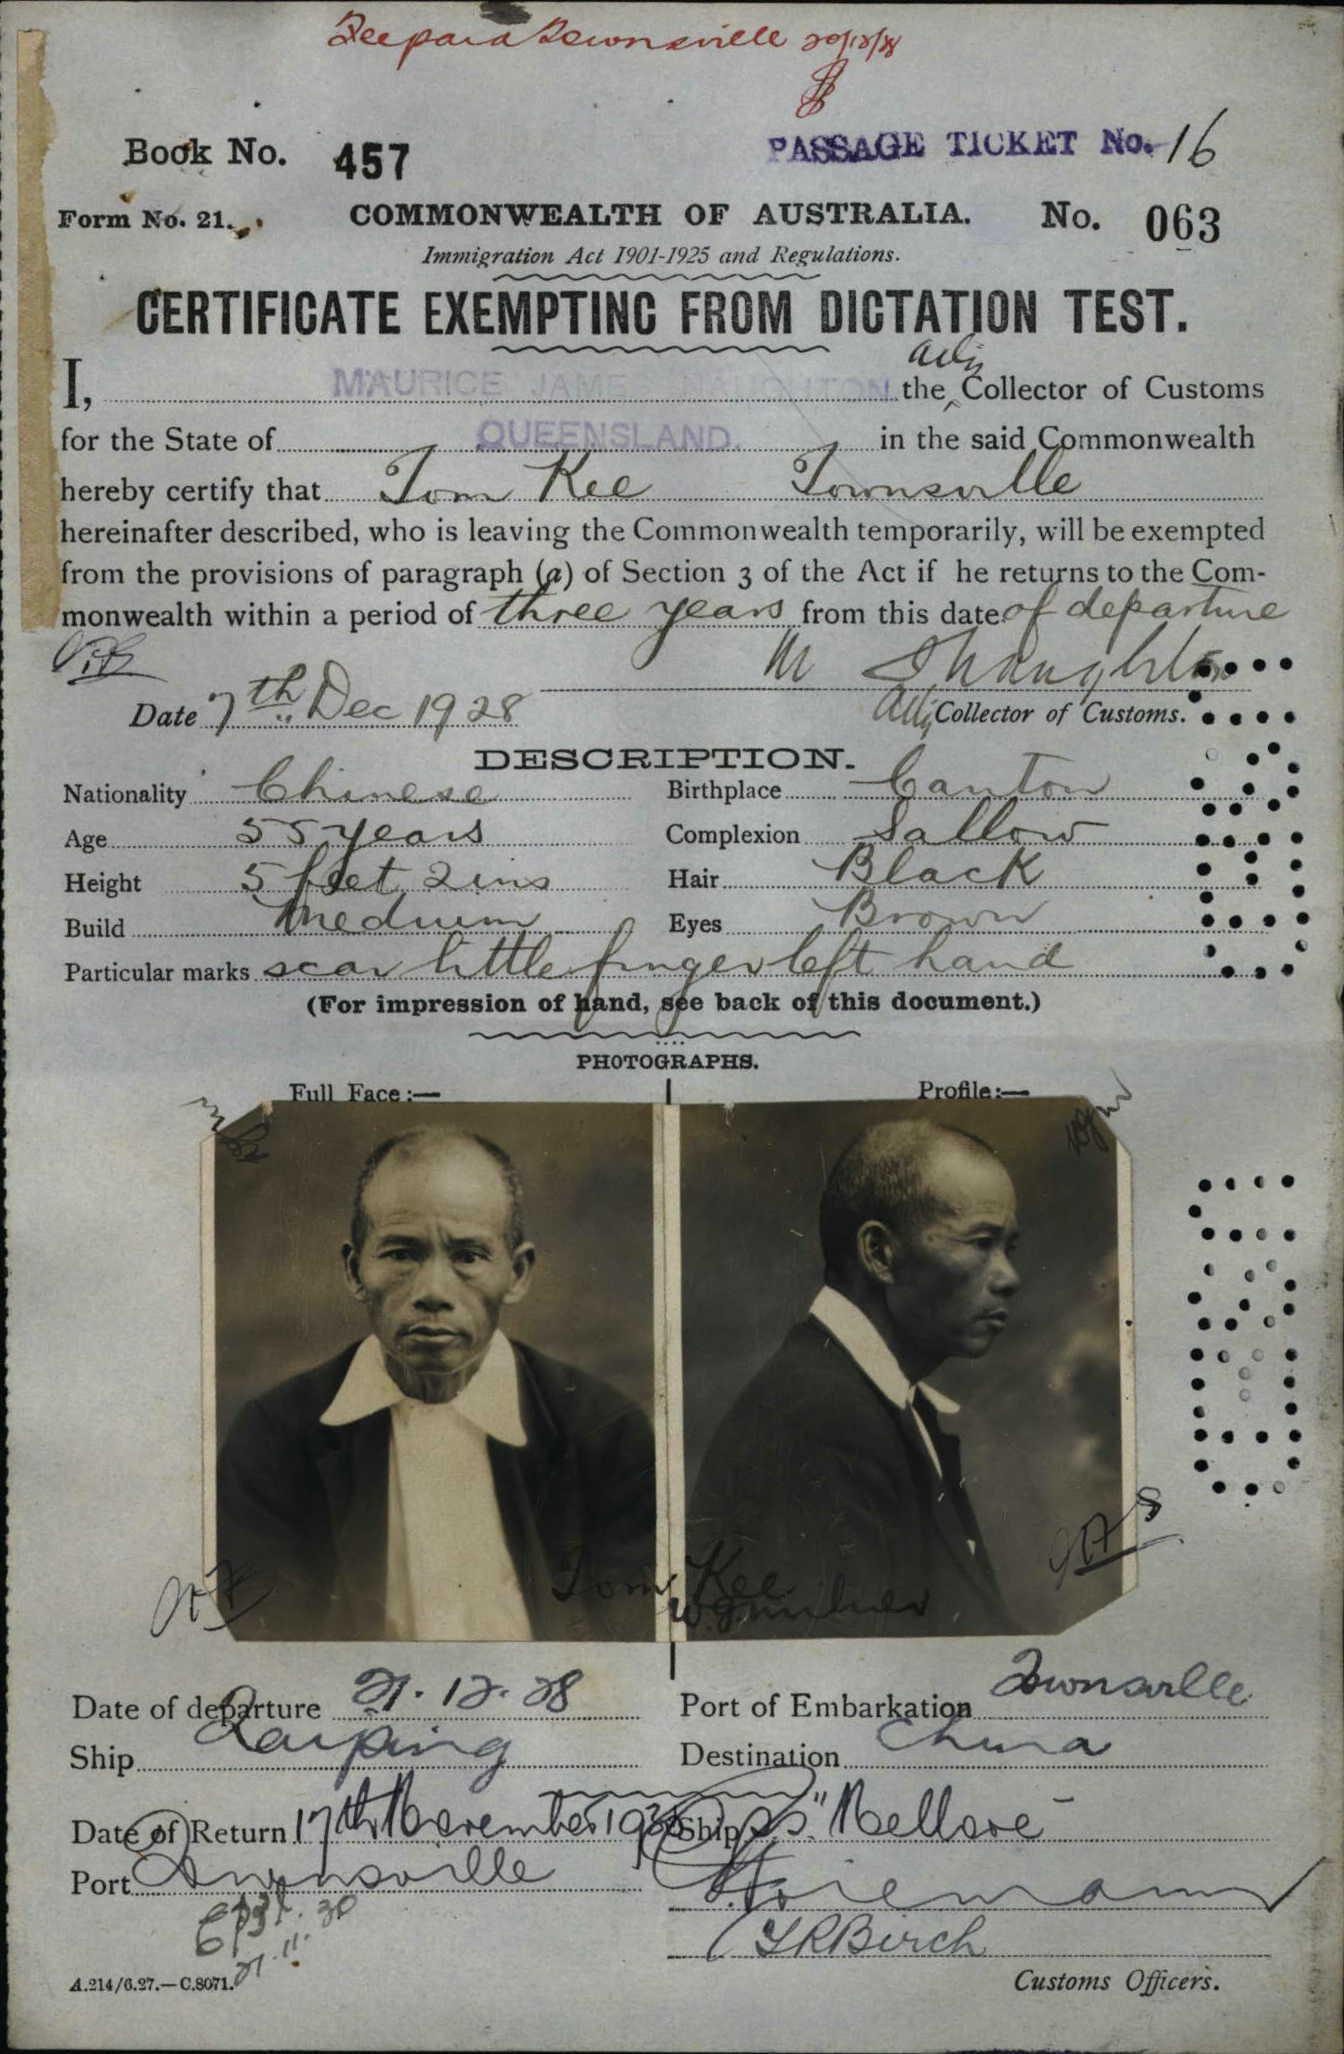 Fee paid Townsville 20/12/28
Book No. 457
PASSAGE TICKET No. 16
Form No. 21.
COMMONWEALTH OF AUSTRALIA. No. 063
Immigration Act 1901-1925 and Regulations.
CERTIFICATE EXEMPTING FROM DICTATION TEST.
I, MAURICE JAMES NAUGHTON the Actg Collector of Customs
for the State of QUEENSLAND. in the said Commonwealth
hereby certify that Tom Kee Townsville
hereinafter described, who is leaving the Commonwealth temporarily, will be exempted
from the provisions of paragraph (a) of Section 3 of the Act if he returns to the Com-
monwealth within a period of three years from this date of departure
Date 7th Dec 1928
Actg Collector of Customs.
DESCRIPTION.
Nationality Chinese Birthplace Canton
Age 55 years Complexion Sallow
Height 5 feet 2 ins Hair Black
Build Medium Eyes Brown
Particular marks scar little finger left hand
(For impression of hand, see back of this document.)
PHOTOGRAPHS.
Full Face:— Profile:—
Tom Kee
Date of departure 21.12.28 Port of Embarkation Townsville
Ship Taiping Destination China
Date of Return 17th November 1930 Ship S.S. "Nellore"
Port Townsville
21.11.30
T R Birch
A.214/6.27.—C.8071. Customs Officers.